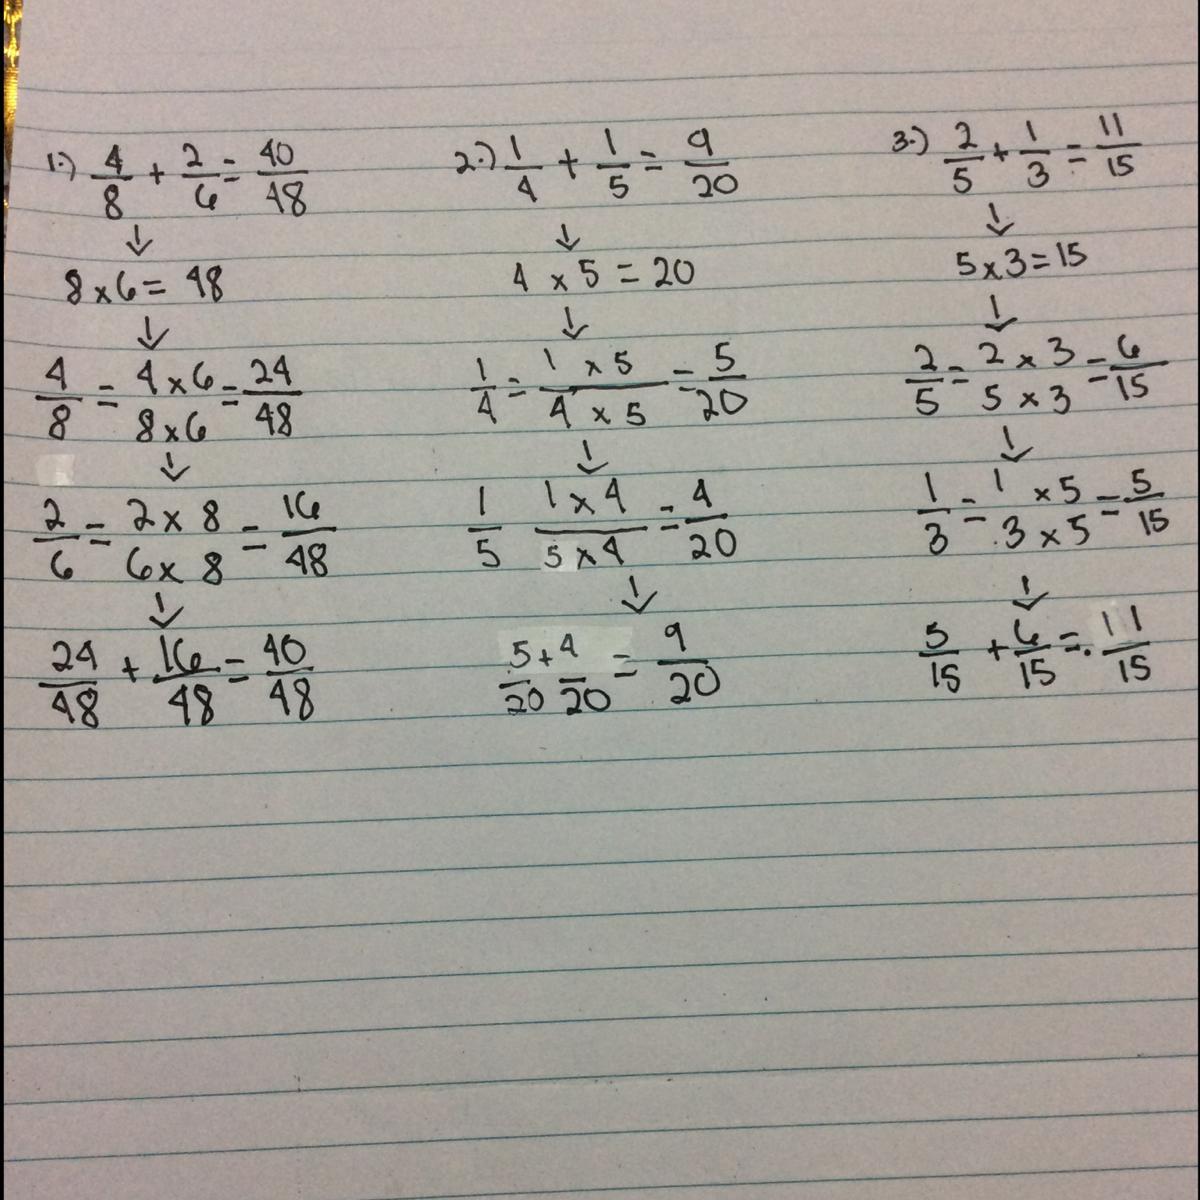 1.) 4/8 + 2/6 = 40/48
↓
8 x 6 = 48
↓
4/8 = 4 x 6 / 8 x 6 = 24/48
↓
2/6 = 2 x 8 / 6 x 8 = 16/48
↓
24/48 + 16/48 = 40/48
2.) 1/4 + 1/5 = 9/20
↓
4 x 5 = 20
↓
1/4 = 1 x 5 / 4 x 5 = 5/20
↓
1/5 1 x 4 / 5 x 4 = 4/20
↓
5/20 + 4/20 = 9/20
3.) 2/5 + 1/3 = 11/15
↓
5 x 3 = 15
↓
2/5 = 2 x 3 / 5 x 3 = 6/15
↓
1/3 = 1 x 5 / 3 x 5 = 5/15
↓
5/15 + 6/15 = 11/15